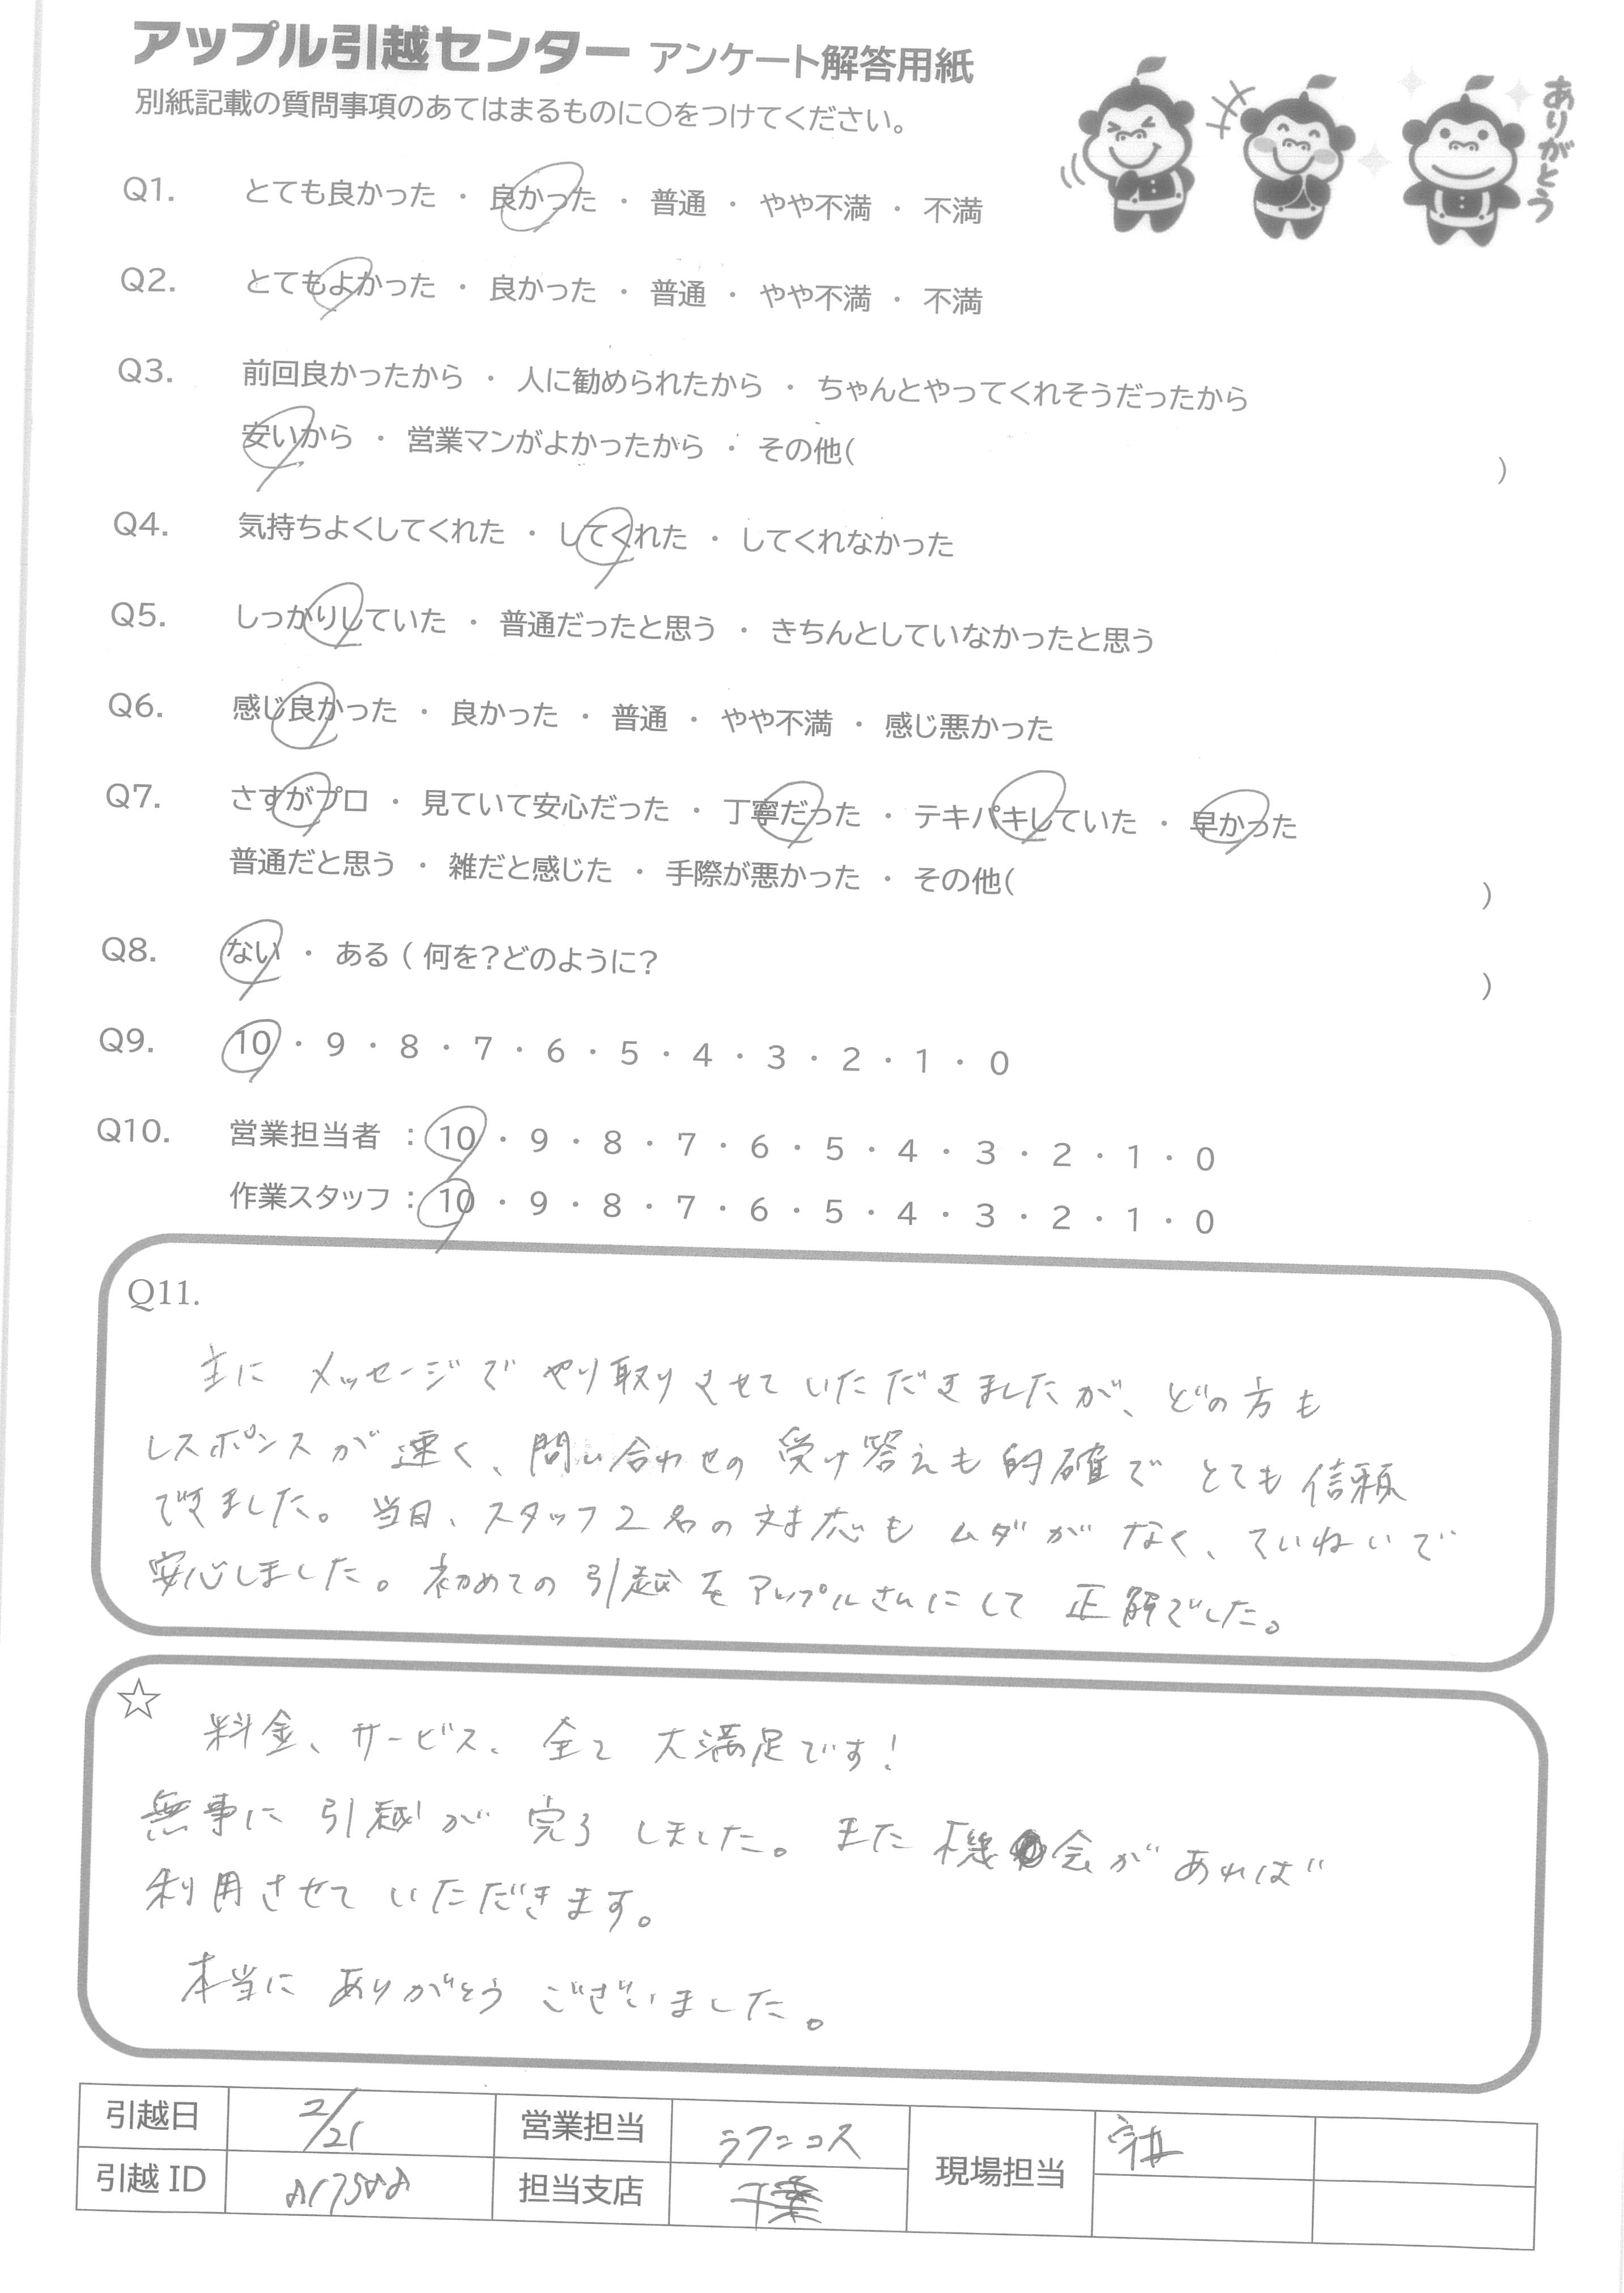 アップル引越センター アンケート解答用紙
別紙記載の質問事項のあてはまるものに○をつけてください。
ありがとう
Q1. とても良かった ・ 良かった ・ 普通 ・ やや不満 ・ 不満
Q2. とてもよかった ・ 良かった ・ 普通 ・ やや不満 ・ 不満
Q3. 前回良かったから ・ 人に勧められたから ・ ちゃんとやってくれそうだったから
安いから ・ 営業マンがよかったから ・ その他( )
Q4. 気持ちよくしてくれた ・ してくれた ・ してくれなかった
Q5. しっかりしていた ・ 普通だったと思う ・ きちんとしていなかったと思う
Q6. 感じ良かった ・ 良かった ・ 普通 ・ やや不満 ・ 感じ悪かった
Q7. さすがプロ ・ 見ていて安心だった ・ 丁寧だった ・ テキパキしていた ・ 早かった
普通だと思う ・ 雑だと感じた ・ 手際が悪かった ・ その他( )
Q8. ない ・ ある ( 何を?どのように? )
Q9. 10 ・ 9 ・ 8 ・ 7 ・ 6 ・ 5 ・ 4 ・ 3 ・ 2 ・ 1 ・ 0
Q10. 営業担当者 : 10 ・ 9 ・ 8 ・ 7 ・ 6 ・ 5 ・ 4 ・ 3 ・ 2 ・ 1 ・ 0
作業スタッフ : 10 ・ 9 ・ 8 ・ 7 ・ 6 ・ 5 ・ 4 ・ 3 ・ 2 ・ 1 ・ 0
Q11.
主に メッセージで やり取りさせていただきましたが、どの方も
レスポンスが速く、問い合わせの受け答えも的確でとても信頼
できました。当日、スタッフ2名の対応もムダがなく、ていねいで
安心しました。初めての引越をアップルさんにして正解でした。
☆ 料金、サービス、全て大満足です!
無事に引越が完了しました。また機会があれば
利用させていただきます。
本当にありがとうございました。
引越日 2/21 営業担当 ラフニコス 現場担当
引越ID 担当支店 千葉